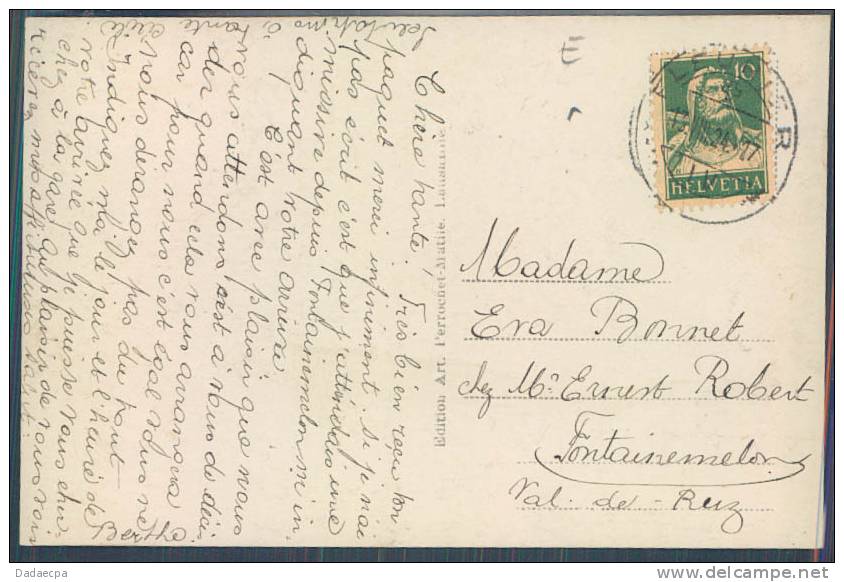 Chère tante! Très bien reçu ton
paquet merci infiniment. si je n'ai
pas écrit c'est que j'attendais une
missive depuis Fontainemelon m'in
diquant votre arrivée
C'est avec plaisir que nous
vous attendons c'est à vous de déci
der quand cela vous arrangera
car pour nous c'est égal vous ne
nous derangez pas du tout
Indiquez m'la le jour et l'heure de
votre arrivée que je puisse vous cher
cher à la gare. Au plaisir de vous voir
recevez mes affectueuses
Berthe
Edition Art. Perrochet-Matile, Lausanne
10
HELVETIA
Madame
Eva Bonnet
chez Mr Ernest Robert
Fontainemelon
Val-de-Ruz
Dadaecpa